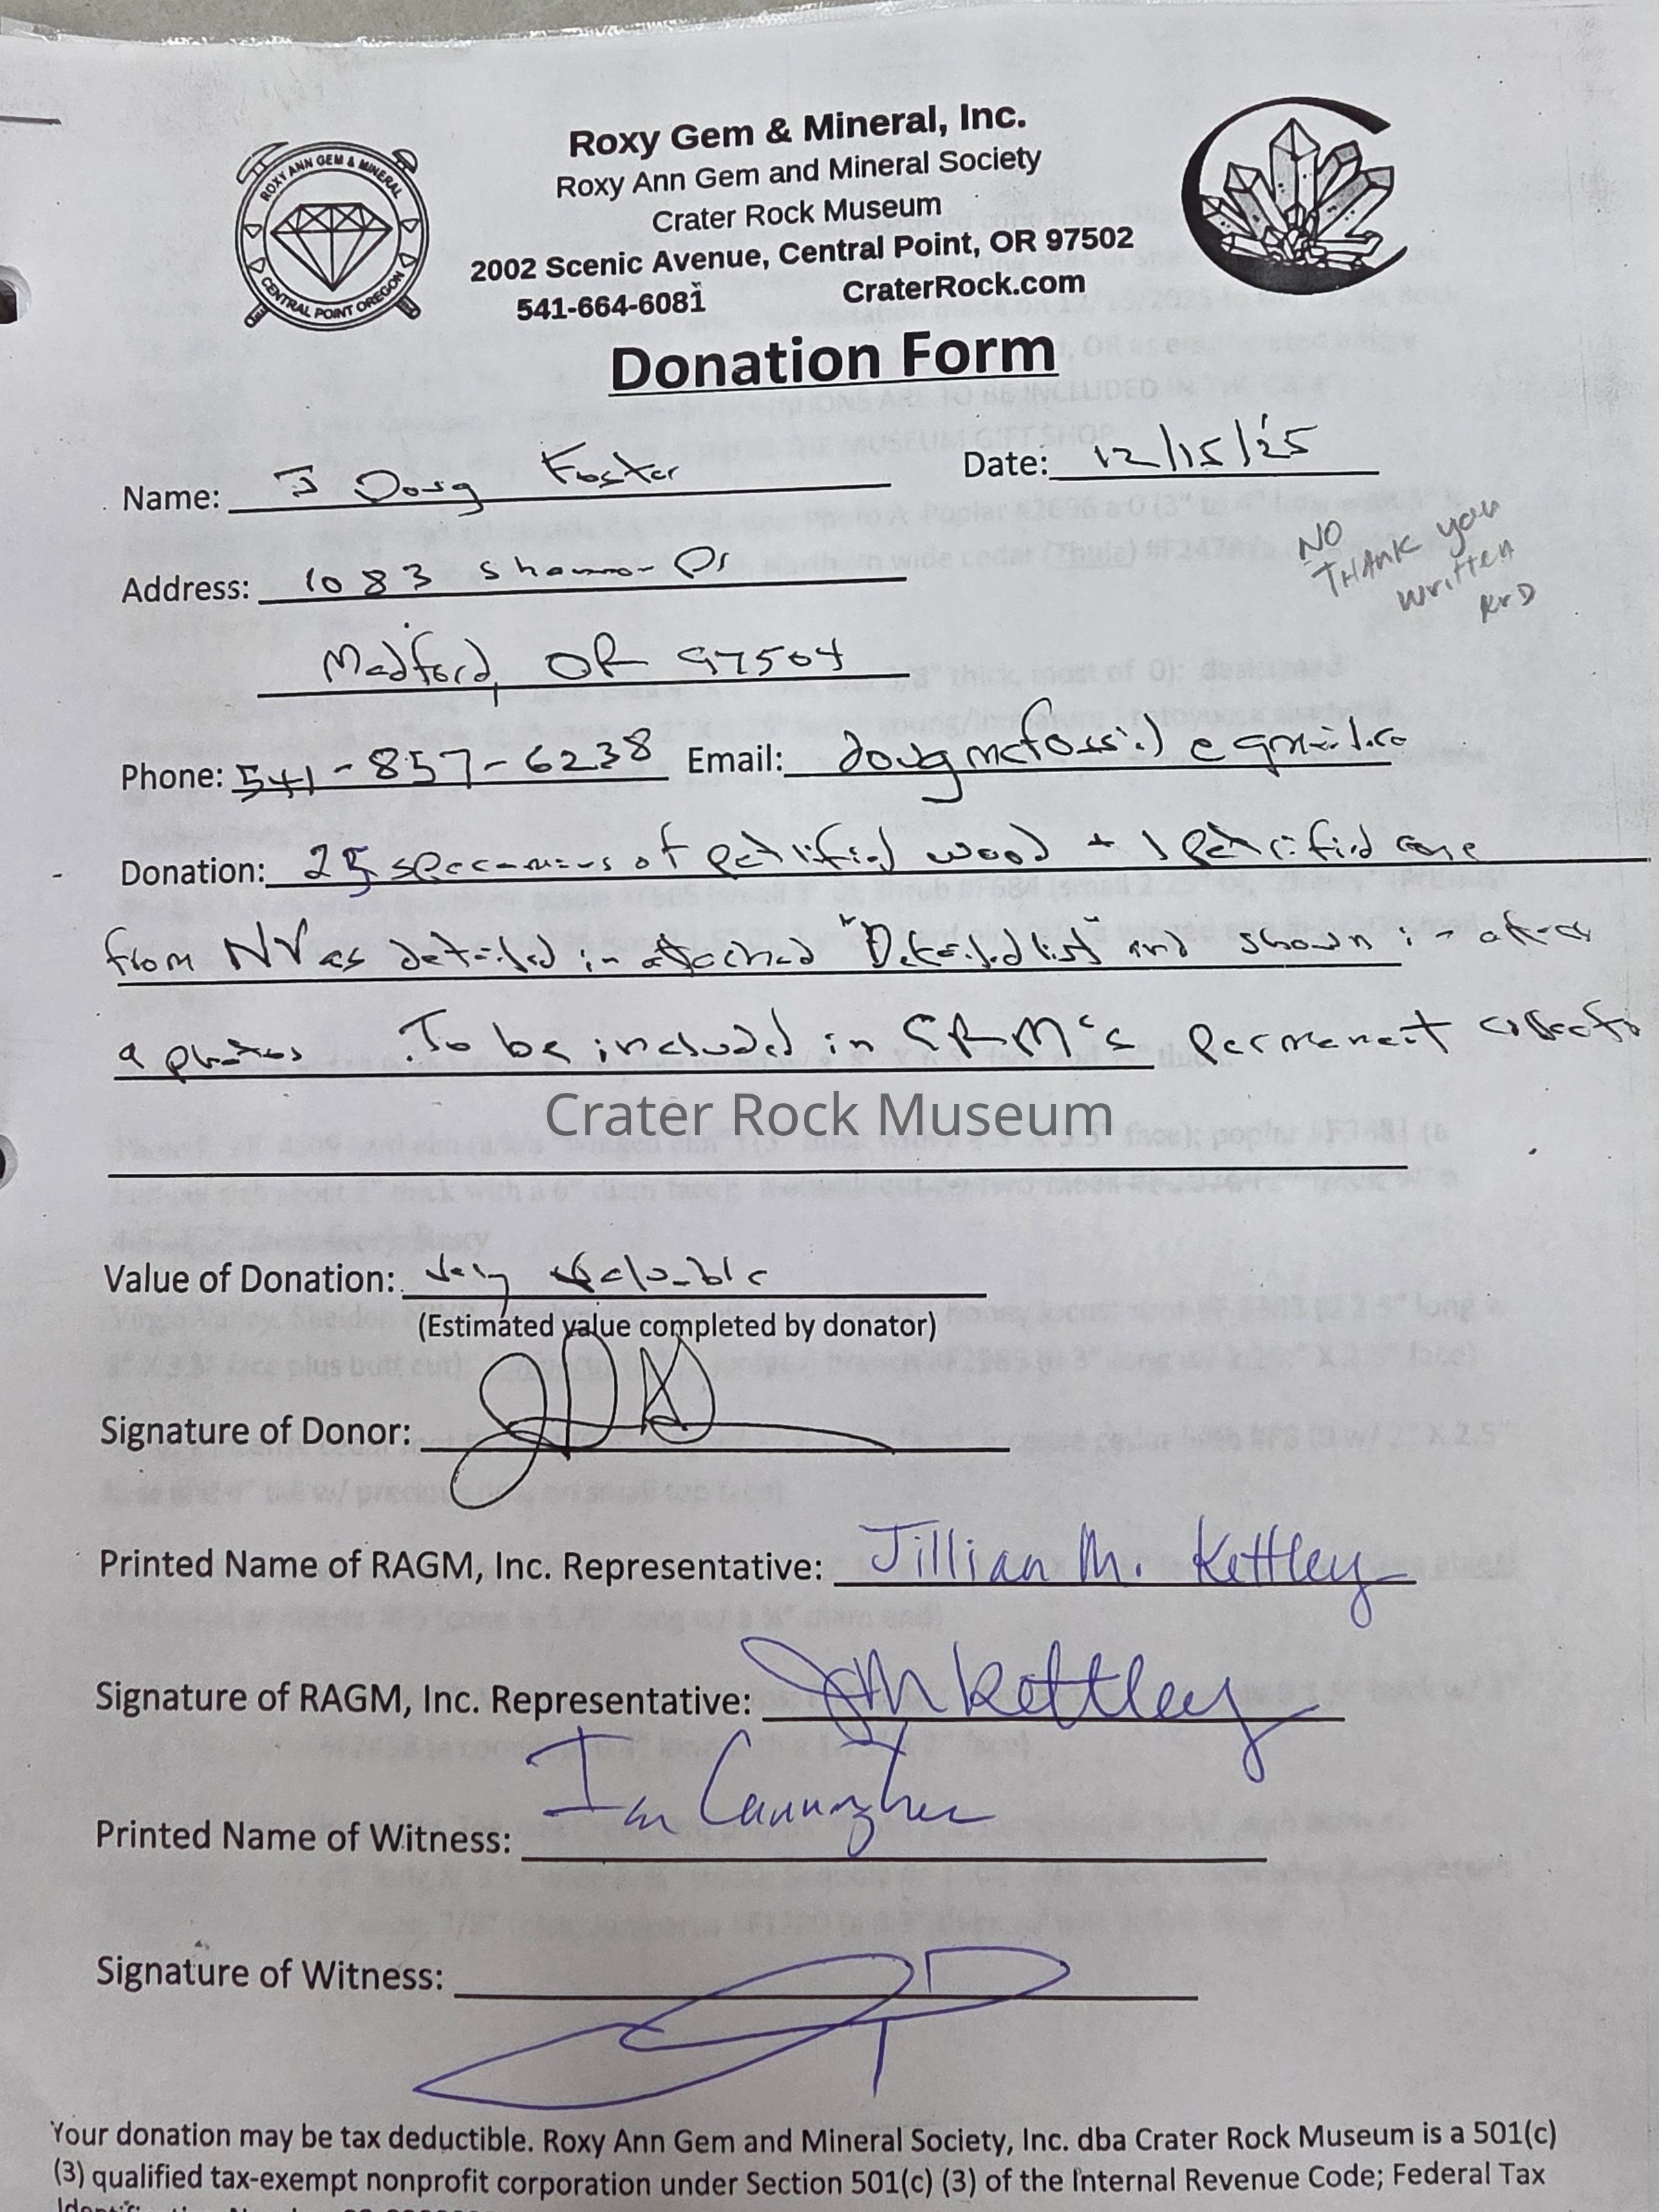 Roxy Gem & Mineral, Inc.
Roxy Ann Gem and Mineral Society
Crater Rock Museum
2002 Scenic Avenue, Central Point, OR 97502
541-664-6081 CraterRock.com
ROXY ANN GEM & MINERAL
CENTRAL POINT OREGON
Donation Form
Name: J Doug Foster Date: 12/15/25
NO
THANK you
written
KrD
Address: 1083 Shannon Dr
Medford, OR 97504
Phone: 541-857-6238 Email: dougmcfossil@gmail.co
Donation: 25 specimens of petrified wood + 1 petrified cone
from NV as detailed in attached "Detailed list" and shown in
9 photos To be included in CRM's permanent
Crater Rock Museum
Value of Donation: Very valuable
(Estimated value completed by donator)
Signature of Donor:
Printed Name of RAGM, Inc. Representative: Jillian M. Kettley
Signature of RAGM, Inc. Representative: JM Kettley
Printed Name of Witness: Ian
Signature of Witness:
Your donation may be tax deductible. Roxy Ann Gem and Mineral Society, Inc. dba Crater Rock Museum is a 501(c)
(3) qualified tax-exempt nonprofit corporation under Section 501(c) (3) of the Internal Revenue Code; Federal Tax